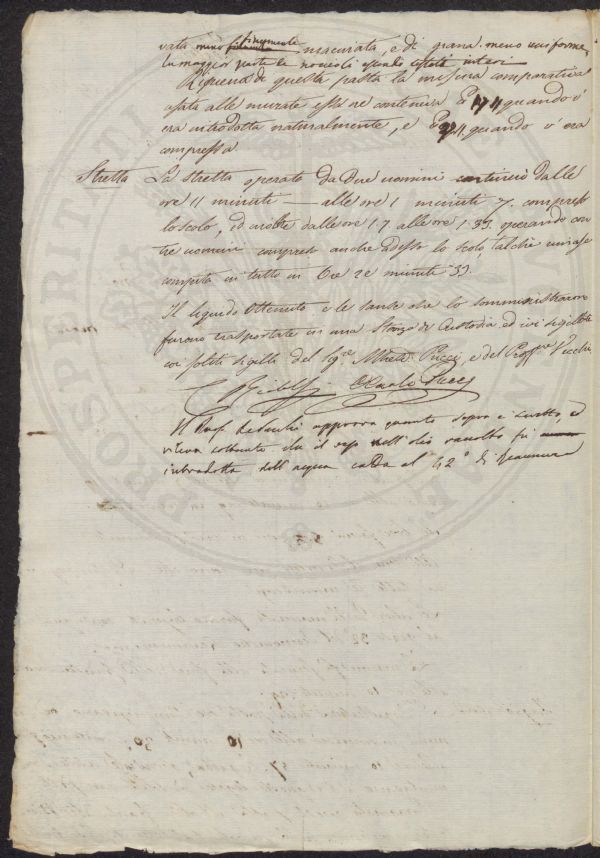 vata meno finamente macinata, e di grana meno uniforme,
la maggior parte de noccioli essendo interi
Ripiena di questa pasta la misura comparativa
usata alle murate essa ne conteneva quando v'
era introdotta naturalmente, e quando v' era
compressa
Stretta La stretta operata da due uomini continuò dalle
ore 11 minute — alle ore 1 minute 7. compreso
lo scolo, ed inoltre dalle ore 1.7 alle ore 1.33. operando con
tre uomini compreso anche adesso lo scolo, talchè rimase
compita in tutto in Ore 2e minuti 33.
Il liquido Ottenuto e le sanse che lo somministrarono
furono trasportate in una Stanza di Custodia ed ivi sigillate
coi soliti sigilli del Sig.re March. Pucci, e del Proff.re Vecchi
Ridolfi Carlo Pucci
Il Prof. approva quanto sopra è scritto, ed
rileva soltanto che il nell' olio raccolto fu
introdotta dell' acqua calda al 42° di Reaumur